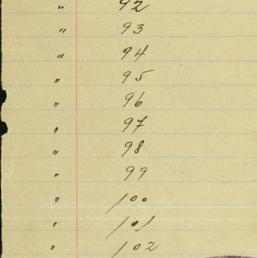 " 92
" 93
" 94
" 95
" 96
" 97
" 98
" 99
" 100
" 101
" 102